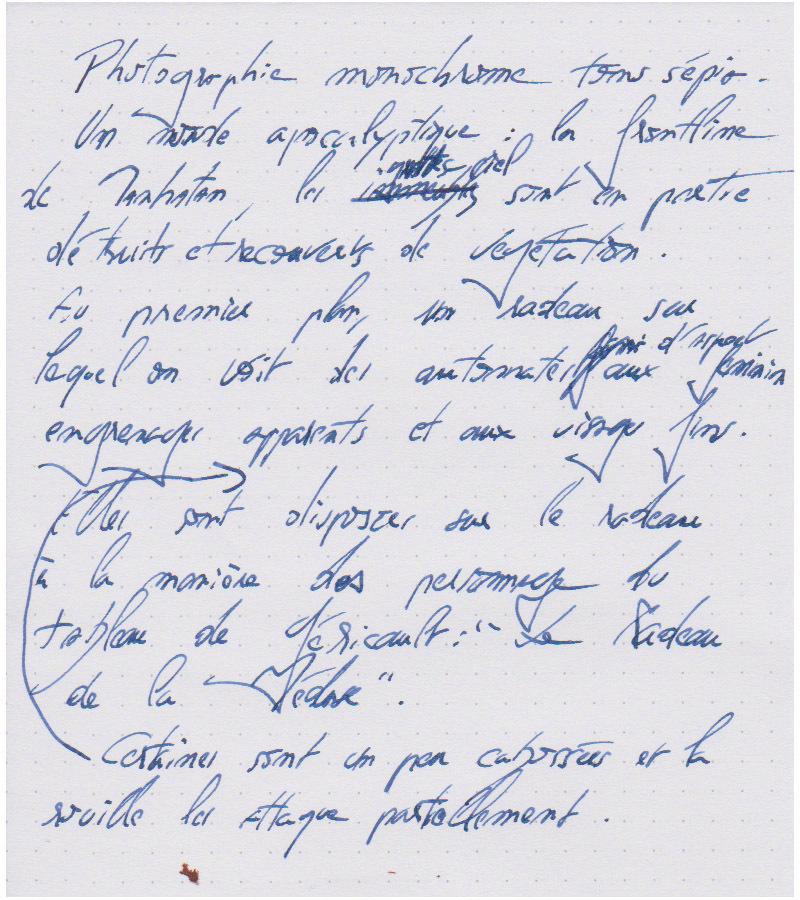 Photographie monochrome tons sépia.
Un monde apocalyptique : la frontline
de Manhatan, les gratte ciel sont en partie
détruits et recouverts de vegetation.
Au premier plan, un radeau sur
lequel on voit des automates d'aspect féminin aux
engrenages apparents et aux visages fins.
Elles sont disposées sur le radeau
à la manière des personnages du
tableau de Géricault : "Le Radeau
de la Méduse".
Certaines sont un peu cabossées et la
rouille les attaque partiellement.